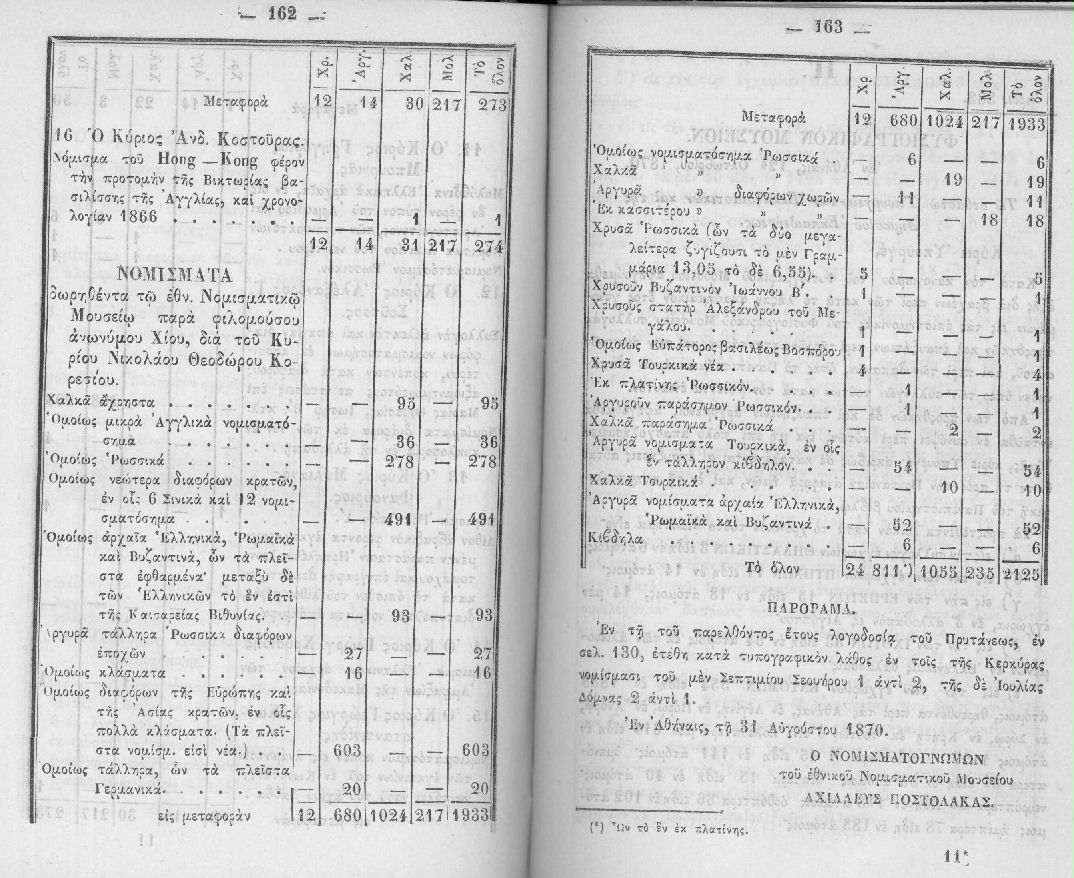 — 162 —
Χρ. Ἀργ. Χαλ Μολ Τὸ ὅλον
Μεταφορὰ 12 14 30 217 273
16 Ὁ Κύριος Ἀνδ. Κοστοῦρας.
Νόμισμα τοῦ Hong—Kong φέρον
τὴν προτομὴν τῆς Βικτωρίας βα-
σιλίσσης τῆς Ἀγγλίας, καὶ χρονο-
λογίαν 1866 . . . . . . 1 1
12 14 31 217 274
ΝΟΜΙΣΜΑΤΑ
δωρηθέντα τῷ ἐθν. Νομισματικῷ
Μουσείῳ παρὰ φιλομούσου
ἀνωνύμου Χίου, διὰ τοῦ Κυ-
ρίου Νικολάου Θεοδώρου Κο-
ρεσίου.
Χαλκᾶ ἄχρηστα . . . . . . — — 95 95
Ὁμοίως μικρὰ Ἀγγλικὰ νομισματό-
σημα . . . . . . . — — 36 36
Ὁμοίως Ῥωσσικά . . . . . — — 278 — 278
Ὁμοίως νεώτερα διαφόρων κρατῶν,
ἐν οἷς 6 Σινικὰ καὶ 12 νομι-
σματόσημα . . . . . — — 491 — 491
Ὁμοίως ἀρχαῖα Ἑλληνικὰ, Ῥωμαϊκὰ
καὶ Βυζαντινὰ, ὧν τὰ πλεῖ-
στα ἐφθαρμένα· μεταξὺ δὲ
τῶν Ἑλληνικῶν τὸ ἓν ἐστὶ
τῆς Καισαρείας Βιθυνίας. . — — 93 — 93
Ἀργυρᾶ τάλληρα Ῥωσσικὰ διαφόρων
ἐποχῶν . . . . . . — 27 — — 27
Ὁμοίως κλάσματα . . . . . — 16 — — 16
Ὁμοίως διαφόρων τῆς Εὐρώπης καὶ
τῆς Ἀσίας κρατῶν, ἐν οἷς
πολλὰ κλάσματα. (Τὰ πλεῖ-
στα νομίσμ. εἰσὶ νέα.) . . — 603 — — 603
Ὁμοίως τάλληρα, ὧν τὰ πλεῖστα
Γερμανικά. . . . . . — 20 — — 20
εἰς μεταφορὰν 12 680 1024 217 1933
— 163 —
Χρ Ἀργ. Χαλ. Μολ Τὸ ὅλον
Μεταφορὰ 12 680 1024 217 1933
Ὁμοίως νομισματόσημα Ῥωσσικά . . — 6 6
Χαλκᾶ » » — — 19 — 19
Ἀργυρᾶ » διαφόρων χωρῶν — 11 11
Ἐκ κασσιτέρου » » » — — — 18 18
Χρυσᾶ Ῥωσσικὰ (ὧν τὰ δύο μεγα-
λείτερα ζυγίζουσι τὸ μὲν Γραμ-
μάρια 13,05 τὸ δὲ 6,55). 5 — — — 5
Χρυσοῦν Βυζαντινὸν Ἰωάννου Β΄. 1 1
Χρυσοῦς στατὴρ Ἀλεξάνδρου τοῦ Με-
γάλου. . . . . . . 1 — — — 1
Ὁμοίως Εὐπάτορος βασιλέως Βοσπόρου 1 — — — 1
Χρυσᾶ Τουρκικὰ νέα . . . . . 4 — — — 4
Ἐκ πλατίνης Ῥωσσικόν. . . . . 1 — — 1
Ἀργυροῦν παράσημον Ῥωσσικόν. . . — 1 — — 1
Χαλκᾶ παράσημα Ῥωσσικά . . . — — 2 — 2
Ἀργυρᾶ νομίσματα Τουρκικὰ, ἐν οἷς
ἓν τάλληρον κίβδηλον. . . — 54 — — 54
Χαλκᾶ Τουρκικά . . . . . — — 10 — 10
Ἀργυρᾶ νομίσματα ἀρχαῖα Ἑλληνικὰ,
Ῥωμαϊκὰ καὶ Βυζαντινά . . — 52 — — 52
Κίβδηλα . . . . . . . . — 6 — — 6
Τὸ ὅλον 24 811*) 1055 235 2125
ΠΑΡΟΡΑΜΑ.
Ἐν τῇ τοῦ παρελθόντος ἔτους λογοδοσίᾳ τοῦ Πρυτάνεως, ἐν
σελ. 130, ἐτέθη κατὰ τυπογραφικὸν λάθος ἐν τοῖς τῆς Κερκύρας
νομίσμασι τοῦ μὲν Σεπτιμίου Σεουήρου 1 ἀντὶ 2, τῆς δὲ Ἰουλίας
Δόμνας 2 ἀντὶ 1.
Ἐν Ἀθήναις, τῇ 31 Αὐγούστου 1870.
Ο ΝΟΜΙΣΜΑΤΟΓΝΩΜΩΝ
τοῦ ἐθνικοῦ Νομισματικοῦ Μουσείου
ΑΧΙΛΛΕΥΣ ΠΟΣΤΟΛΑΚΑΣ.
(*) Ὧν τὸ ἓν ἐκ πλατίνης.
11*